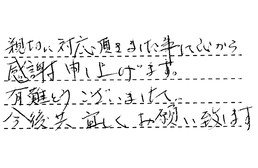 親切に対応頂きました事に心から
感謝申し上げます。
有難とうございました
今後共宜しくお願い致します